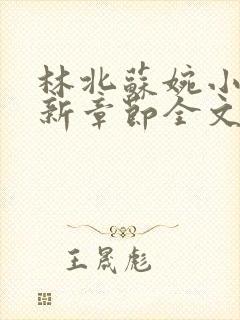 林北蘇婉小
新章節全文
王晟彪